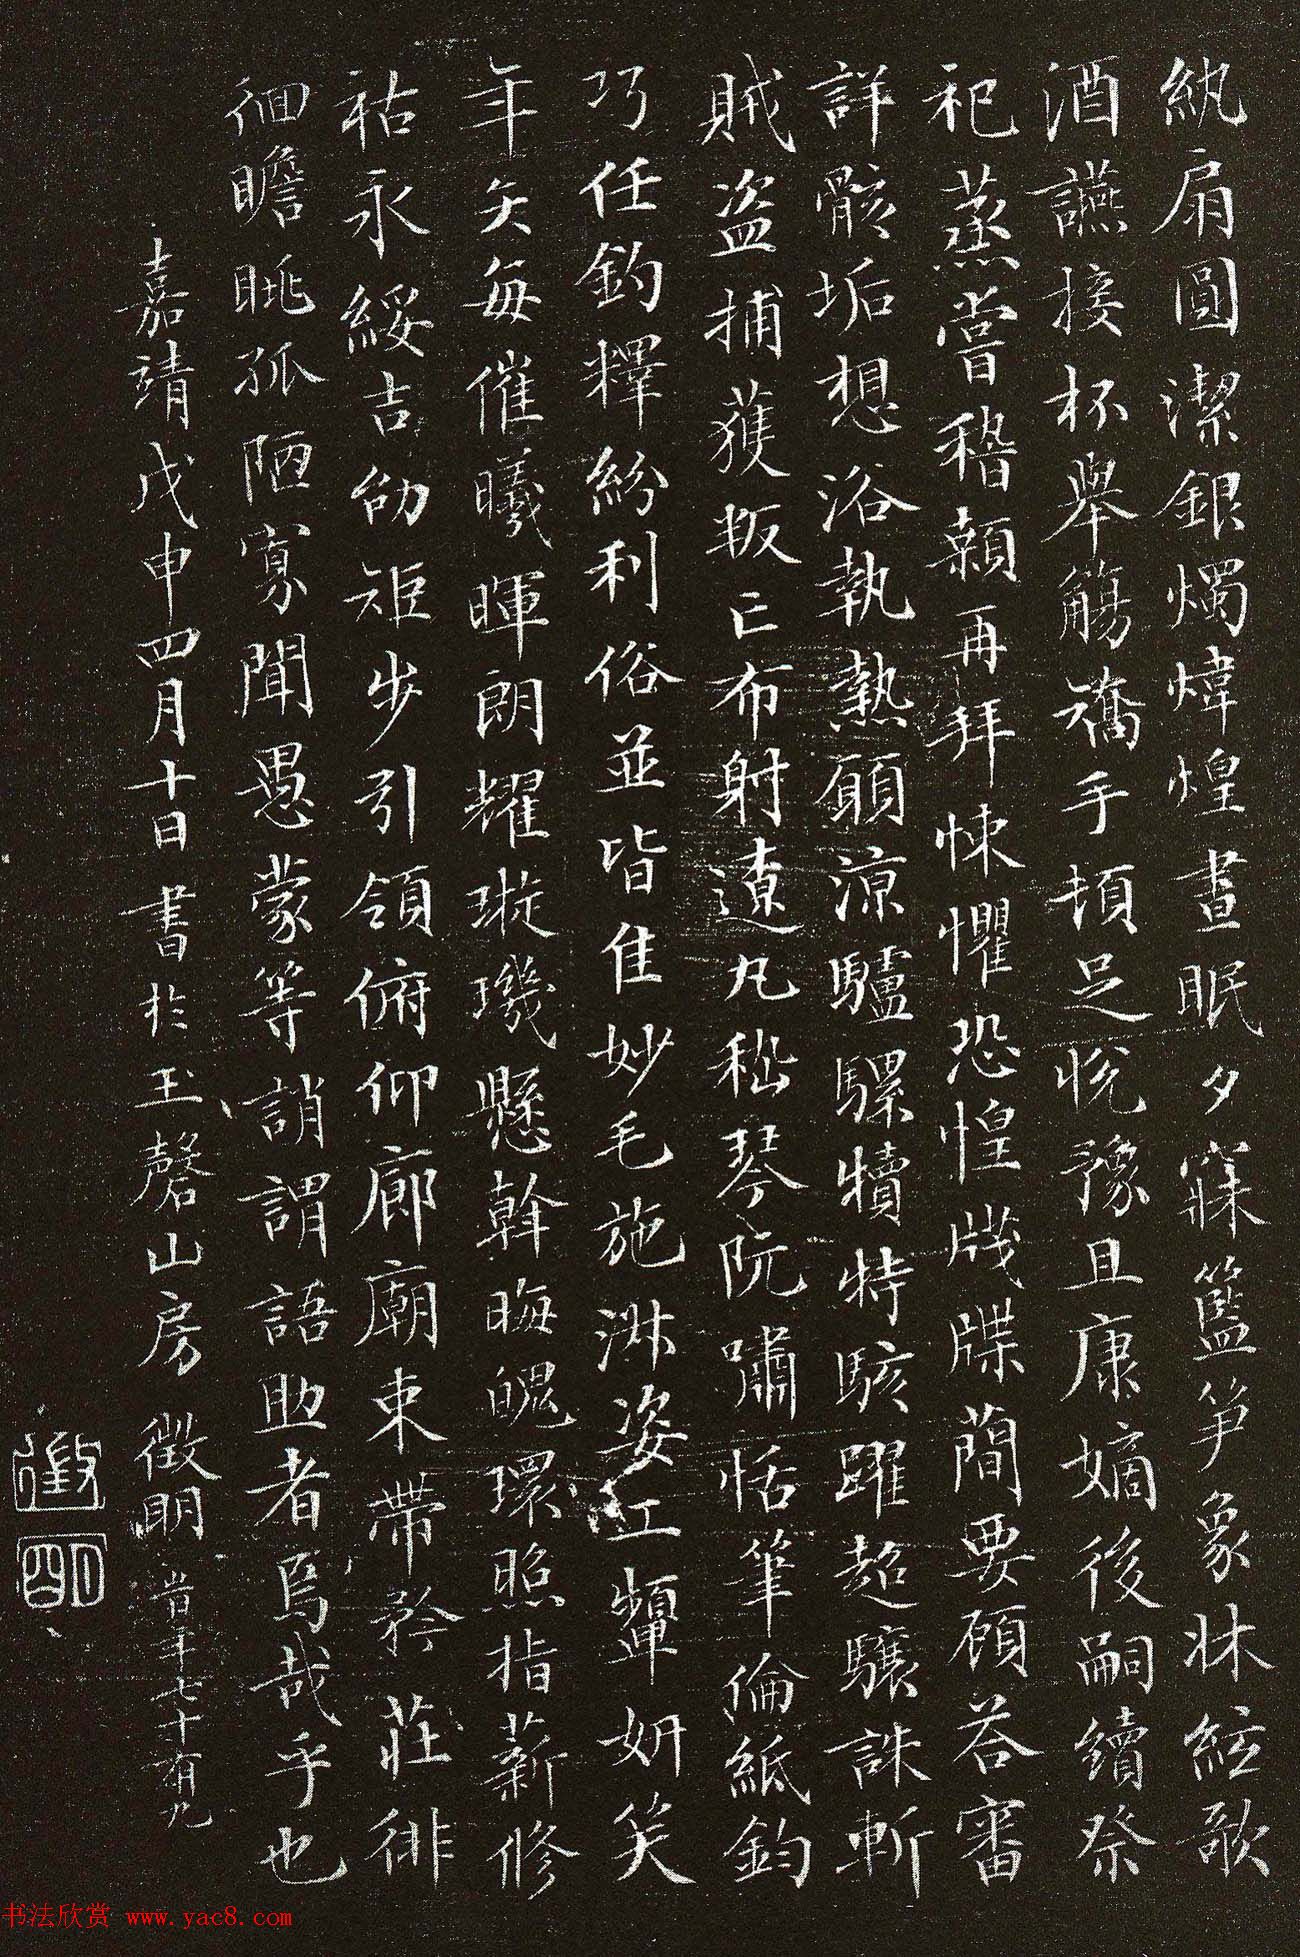 紈扇圓潔銀燭煒煌晝眠夕寐籃笋象牀絃歌
酒讌接杯舉觴矯手頓足悅豫且康嫡後嗣續祭
祀蒸嘗稽顙再拜悚懼恐惶牋牒簡要顧答審
詳骸垢想浴執熱願涼驢騾犢特駭躍超驤誅斬
賊盜捕獲叛亡布射遼丸嵇琴阮嘯恬筆倫紙鈞
巧任鈞釋紛利俗並皆佳妙毛施淋姿工顰妍笑
年矢每催曦暉朗耀璇璣懸斡晦魄環照指薪修
祜永綏吉劭矩步引領俯仰廊廟束帶矜莊徘
徊瞻眺孤陋寡聞愚蒙等誚謂語助者焉哉乎也
嘉靖戊申四月十日書於玉磬山房 徵明 昔年七十有九
徵
明
书法欣赏 www.yac8.com